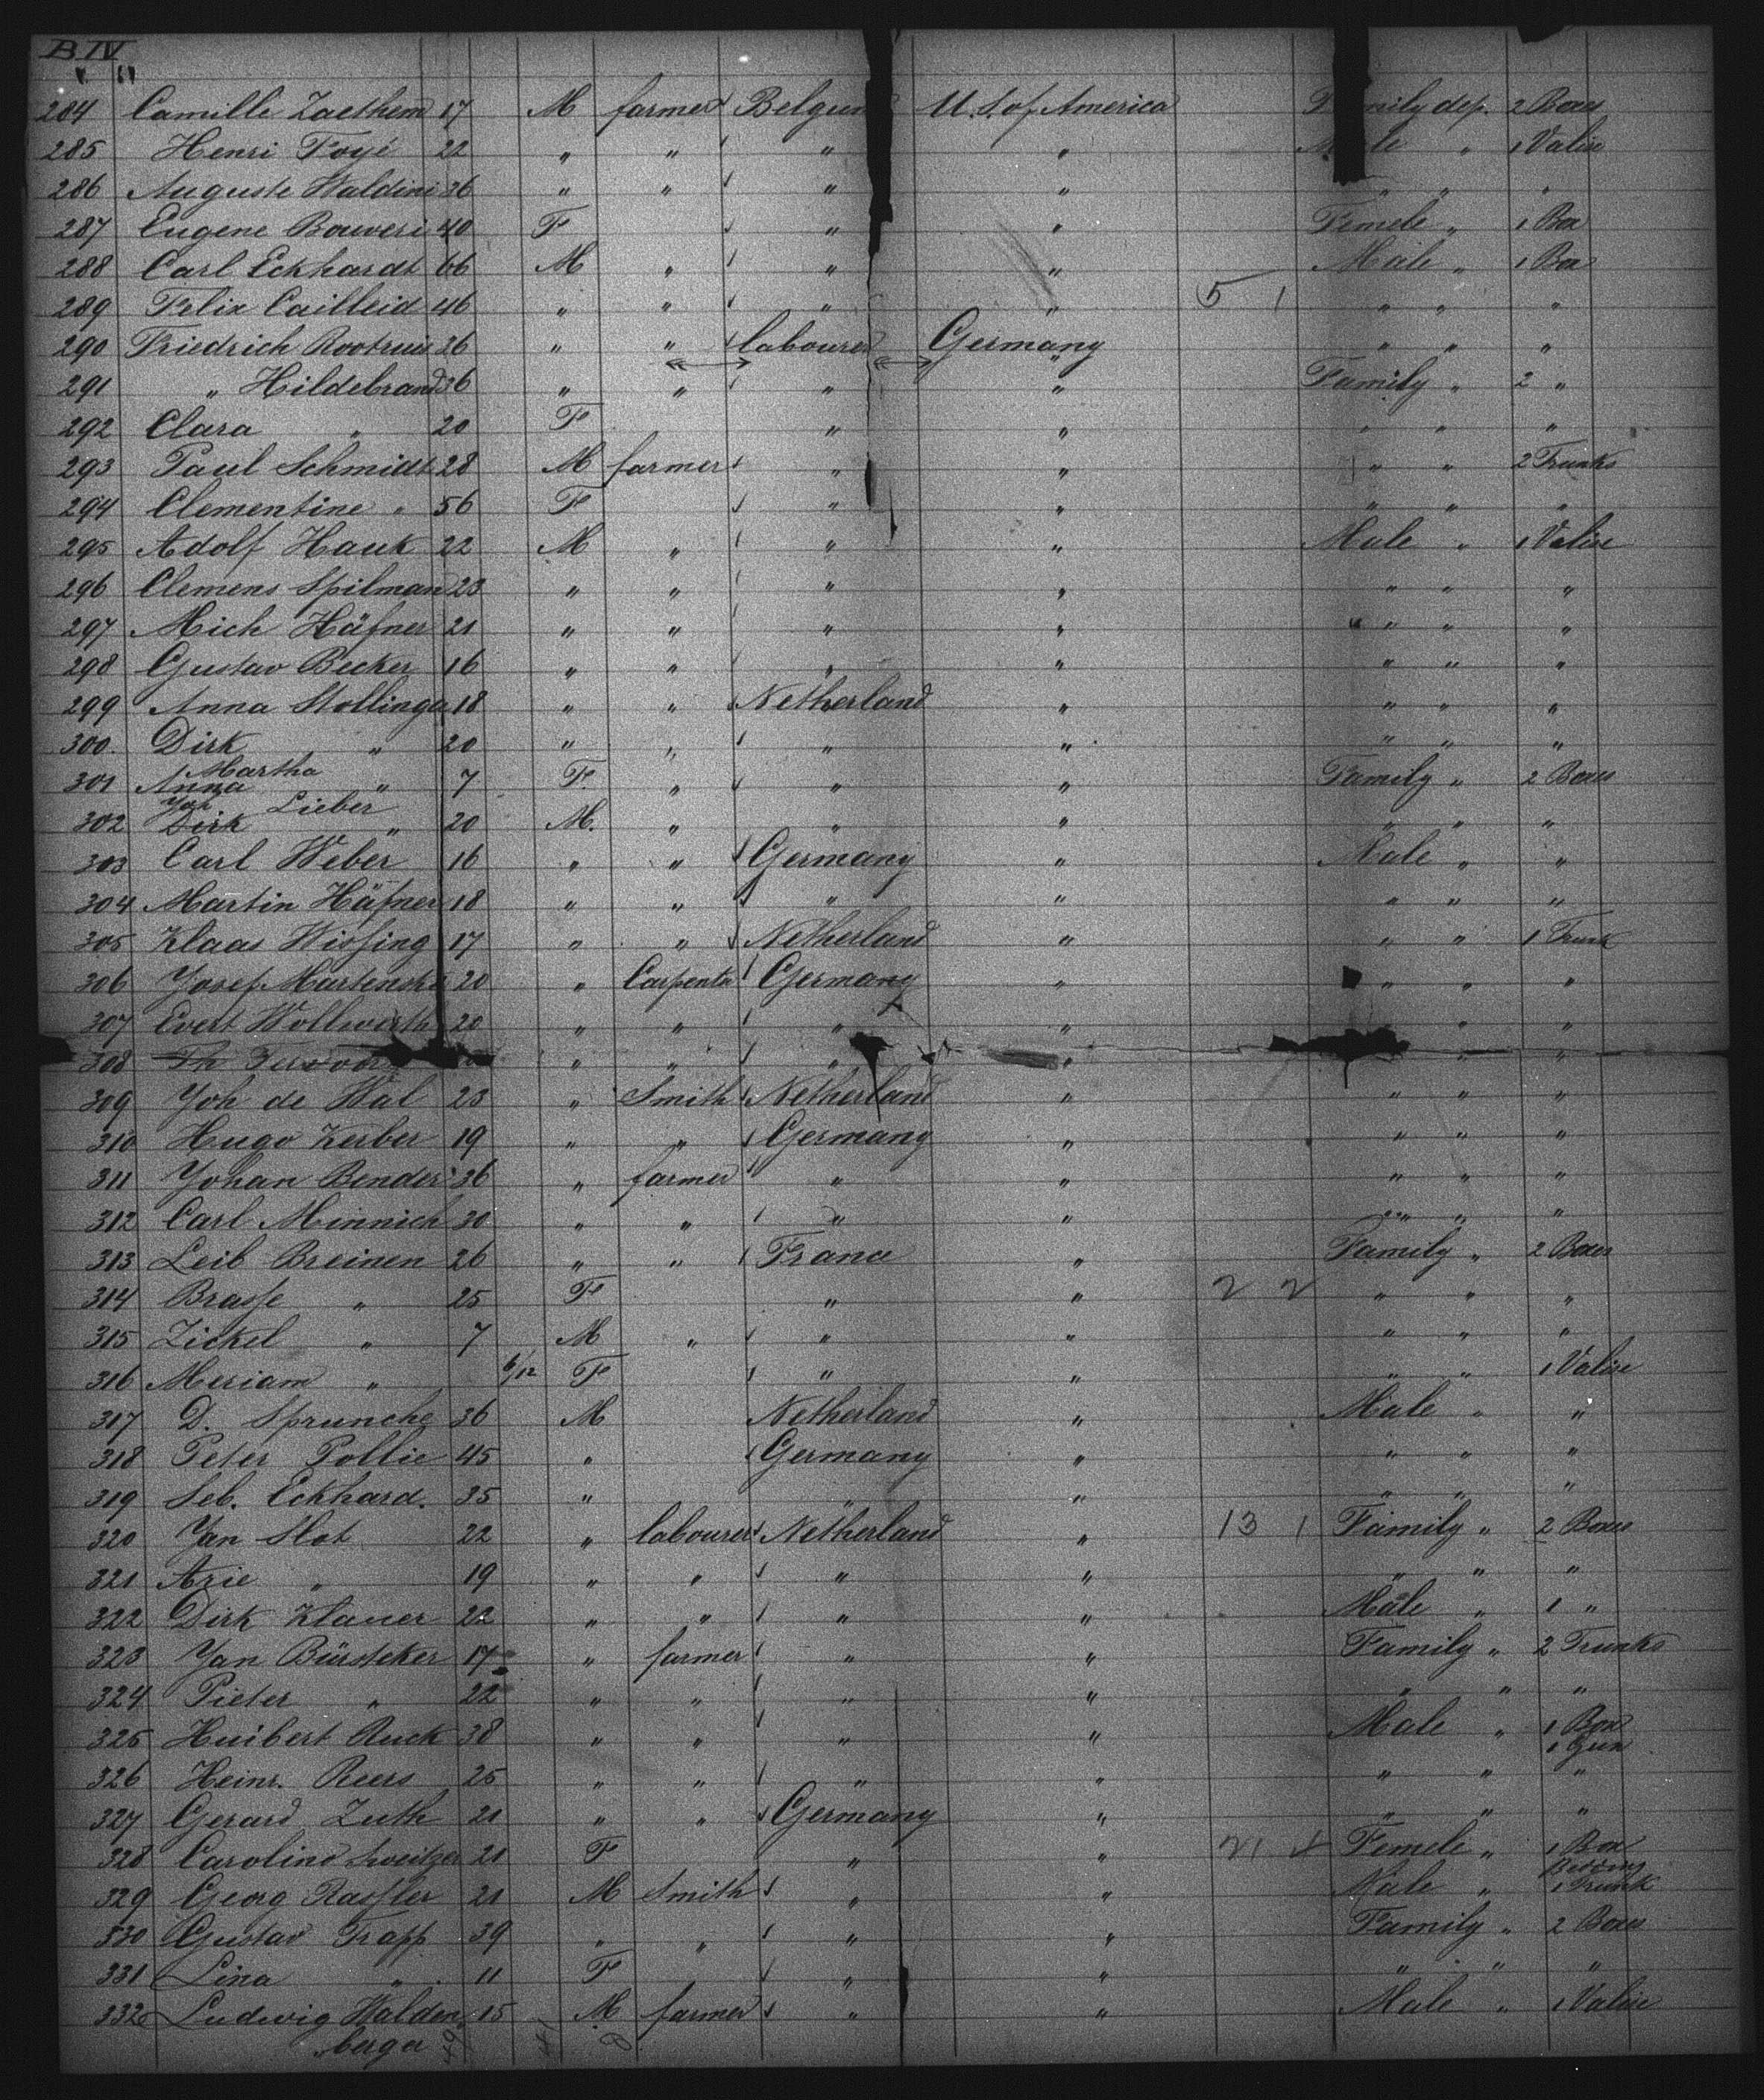 B IV
" "
284 Camille Zaethem 17 M farmer Belgium U.S. of America Family dep. 2 Boxes
285 Henri Foyé 22 " " " " Male " 1 Valise
286 Auguste Waldini 36 " " " " " " "
287 Eugene Bouweri 40 F " " Femele " 1 Box
288 Carl Eckhardt 66 M " " " Male " 1 Box
289 Felix Cailleid 46 " " " " 5 1 " " "
290 Friedrich 26 " " labourer Germany " " "
291 " Hildebrand 36 " " " " Family " 2 "
292 Clara " 20 F " " " " "
293 Paul Schmidt 28 M farmer " " " " 2 Trunks
294 Clementine " 56 F " " " " "
295 Adolf Hauk 22 M " " " Male " 1 Valise
296 Clemens Spilman 23 " " " " " " "
297 Mich Häfner 21 " " " " " " "
298 Gustav Becker 16 " " " " " " "
299 Anna Stollinga 18 " " Netherland " " " "
300. Dirk " 20 " " " " " " "
301 Anna Martha " 7 F. " " " Family " 2 Boxes
302 Dirk Joh Lieber " 20 M. " " " " " "
303 Carl Weber 16 " " Germany " Male " "
304 Martin Häfner 18 " " " " " " "
305 Klaas Wissing 17 " " Netherland " " " 1 Trunk
306 Josef Martenske 20 " Carpenter Germany " " " "
307 Evert Wollwerth 20 " " " " " "
308 Th " " " " " "
309 Joh de Wal 23 " Smith Netherland " " " "
310 Hugo Kerber 19 " " Germany " " " "
311 Johan Bender 36 " farmer " " " " "
312 Carl Minnich 30 " " " " " " "
313 Leib Breinen 26 " " France " Family " 2 Boxes
314 Brasse " 25 F " " 2 2 " " "
315 Zickel " 7 M " " " " " "
316 Meriam " 6/12 F " " " " 1 Valise
317 D. Sprunche 36 M Netherland " Male " "
318 Peter Pollie 45 " Germany " " " "
319 Seb. Eckhard. 35 " " " " " "
320 Jan Slot 22 " labourer Netherland " 13 1 Family " 2 Boxes
321 Arie " 19 " " " " " " "
322 Dirk Klauer 22 " " " " Male " 1 "
323 Jan Bürsteker 17 " farmer " " Family " 2 Trunks
324 Pieter " 22 " " " " " " "
325 Huibert Ruck 38 " " " " Male " 1 Box
1 Gun
326 Heinr. Reers 25 " " " " " " "
327 Gerard Zuth 21 " " Germany " " " "
328 Caroline Sweitzer 21 F " " 21 Femele " 1 Box
Bedding
329 Georg Rassler 21 M Smith " " Male " 1 Trunk
330 Gustav Trapp 39 " " " " Family " 2 Boxes
331 Lina " 11 F " " " " "
332 Ludwig Walden 15 M farmer " " Male " 1 Valise
berger